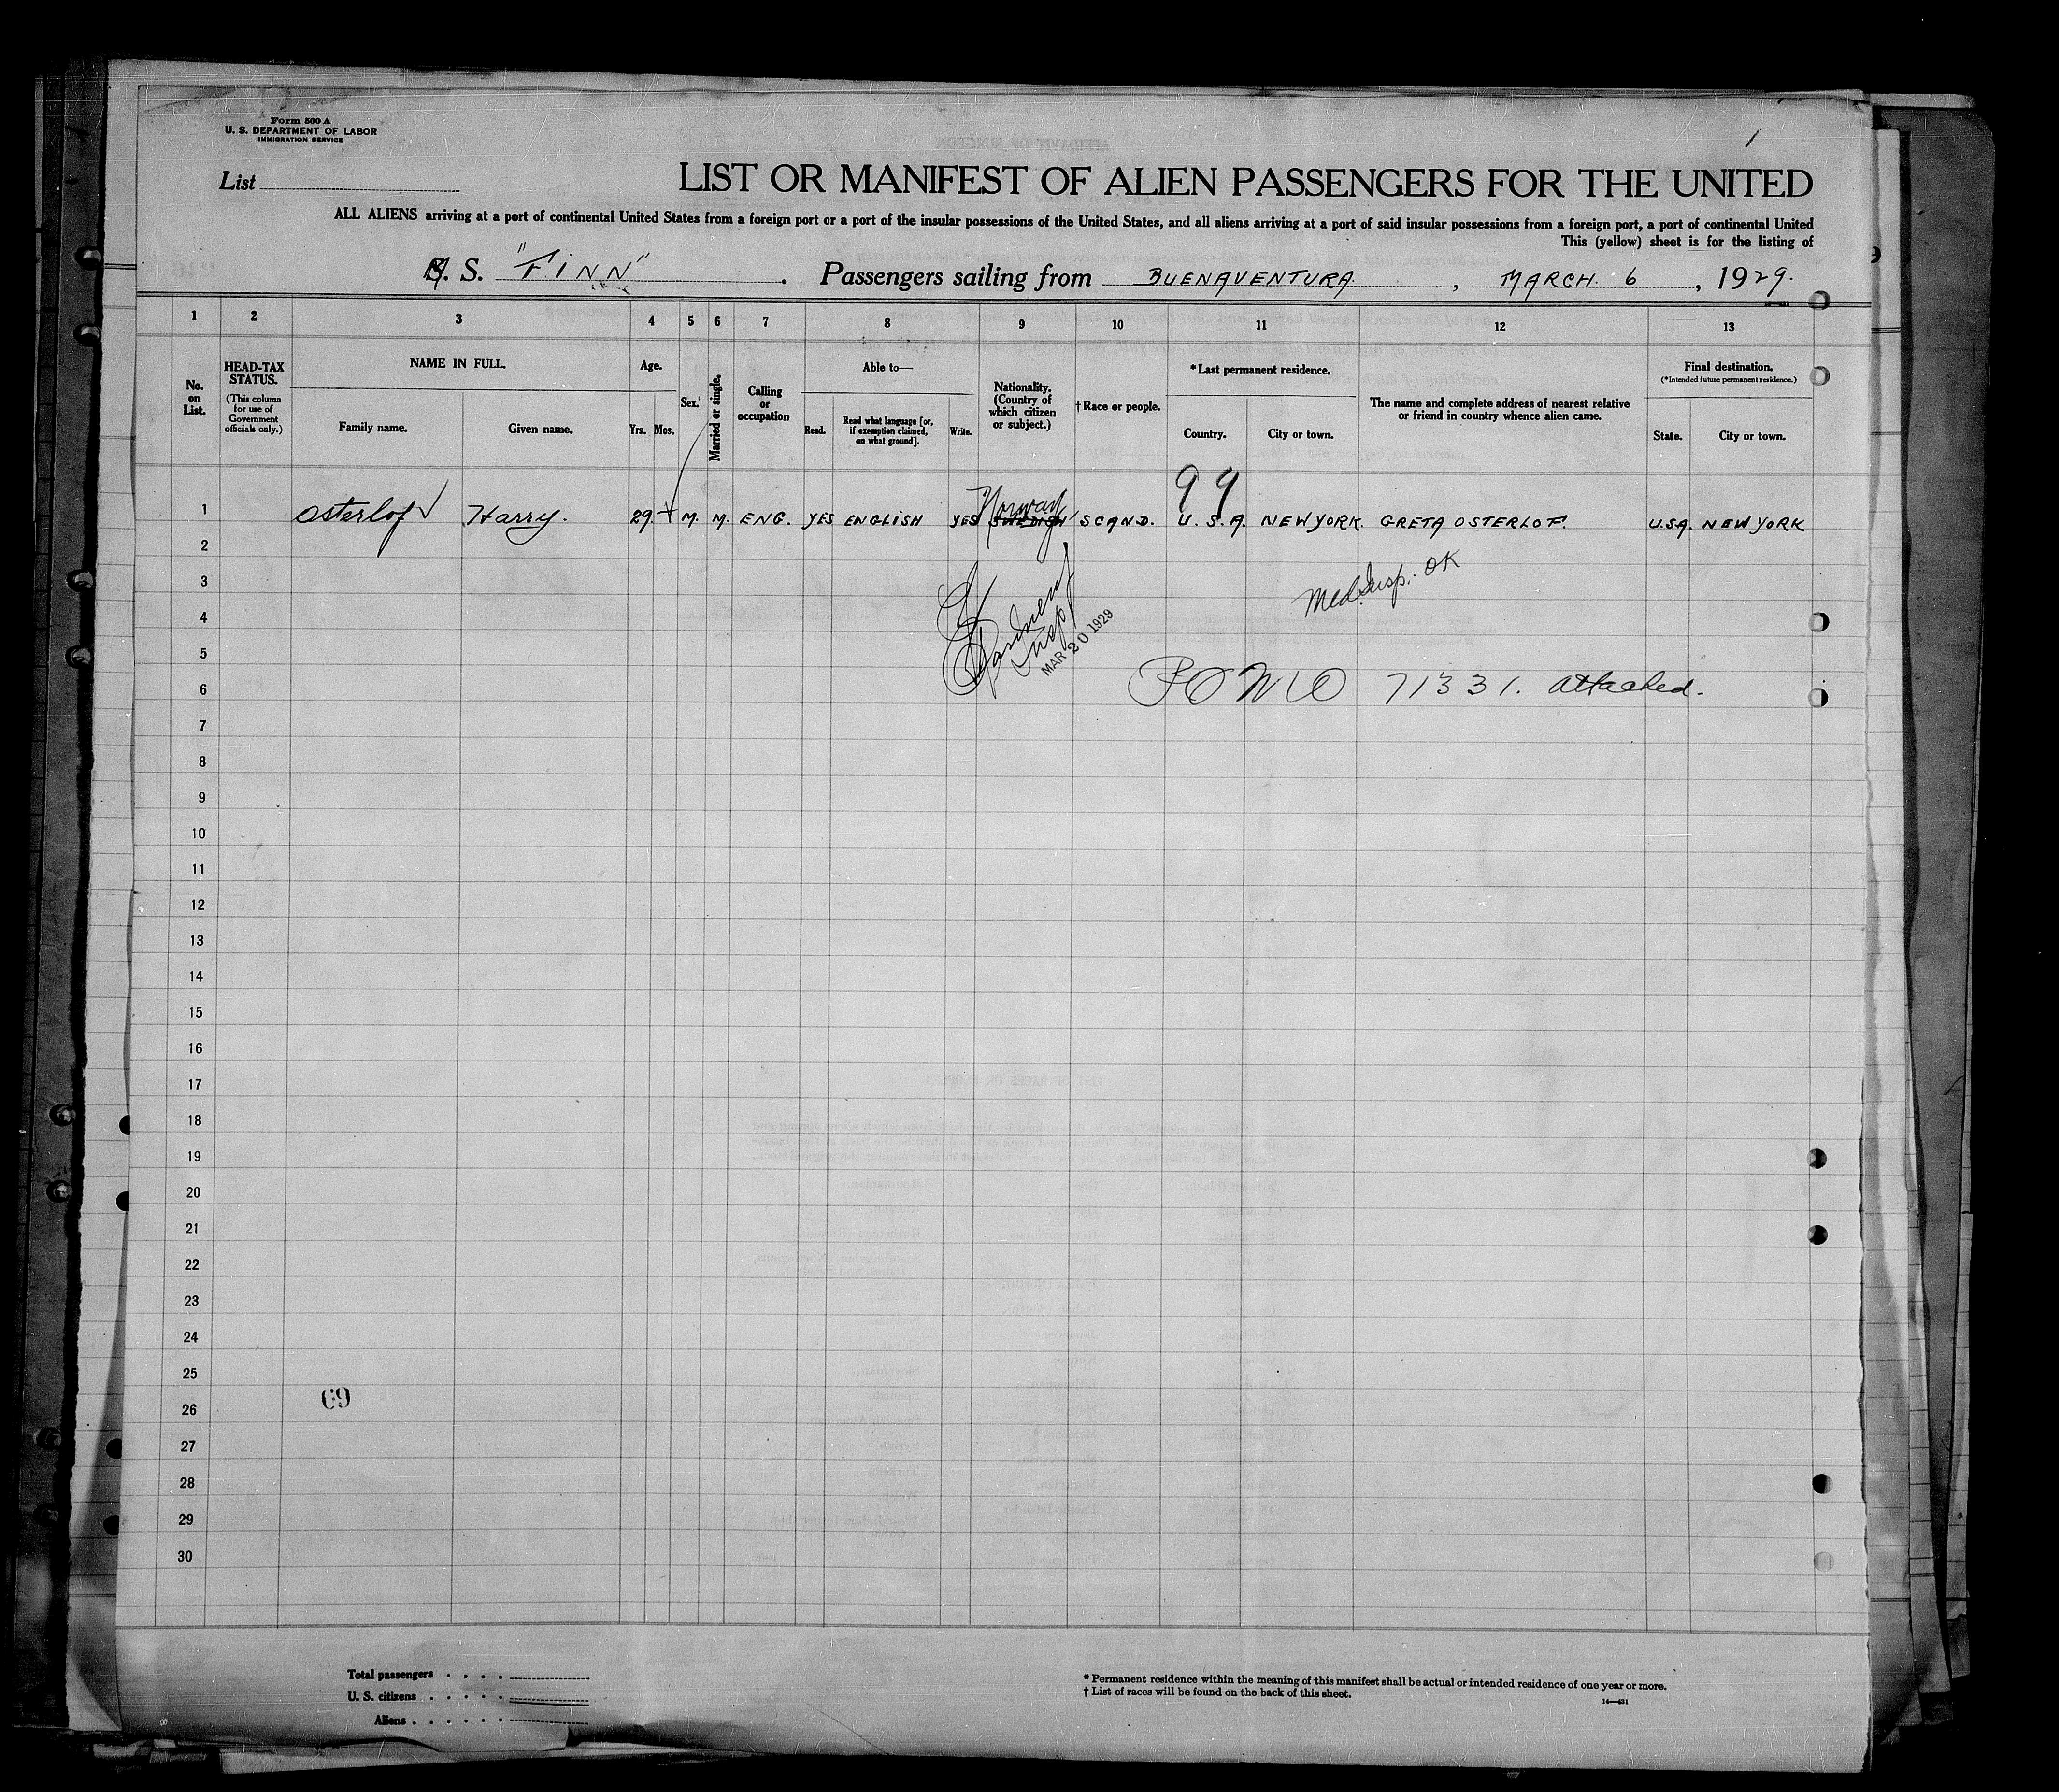 Form 500 A
U. S. DEPARTMENT OF LABOR
IMMIGRATION SERVICE
1
List
LIST OR MANIFEST OF ALIEN PASSENGERS FOR THE UNITED
ALL ALIENS arriving at a port of continental United States from a foreign port or a port of the insular possessions of the United States, and all aliens arriving at a port of said insular possessions from a foreign port, a port of continental United
This (yellow) sheet is for the listing of
M. S. "FINN". Passengers sailing from BUENAVENTURA, MARCH. 6, 1929.
1 2 3 4 5 6 7 8 9 10 11 12 13
No. on List.
HEAD-TAX STATUS.
(This column for use of Government officials only.)
NAME IN FULL.
Family name.
Given name.
Age.
Yrs. Mos.
Sex.
Married or single.
Calling or occupation
Able to—
Read.
Read what language [or, if exemption claimed, on what ground].
Write.
Nationality. (Country of which citizen or subject.)
† Race or people.
*Last permanent residence.
Country.
City or town.
The name and complete address of nearest relative or friend in country whence alien came.
Final destination.
(*Intended future permanent residence.)
State.
City or town.
99
Norway
1 Osterlof Harry. 29. M. M. ENG. YES ENGLISH YES SWEDISH SCAND. U.S.A. NEW YORK. GRETA OSTERLOF. U.S.A. NEW YORK
2
3 Med. Insp. OK
4
5 Insp MAR 20 1929
6 71331. attached.
7
8
9
10
11
12
13
14
15
16
17
18
19
20
21
22
23
24
25
69
26
27
28
29
30
Total passengers
U. S. citizens
Aliens
* Permanent residence within the meaning of this manifest shall be actual or intended residence of one year or more.
† List of races will be found on the back of this sheet.
14—431